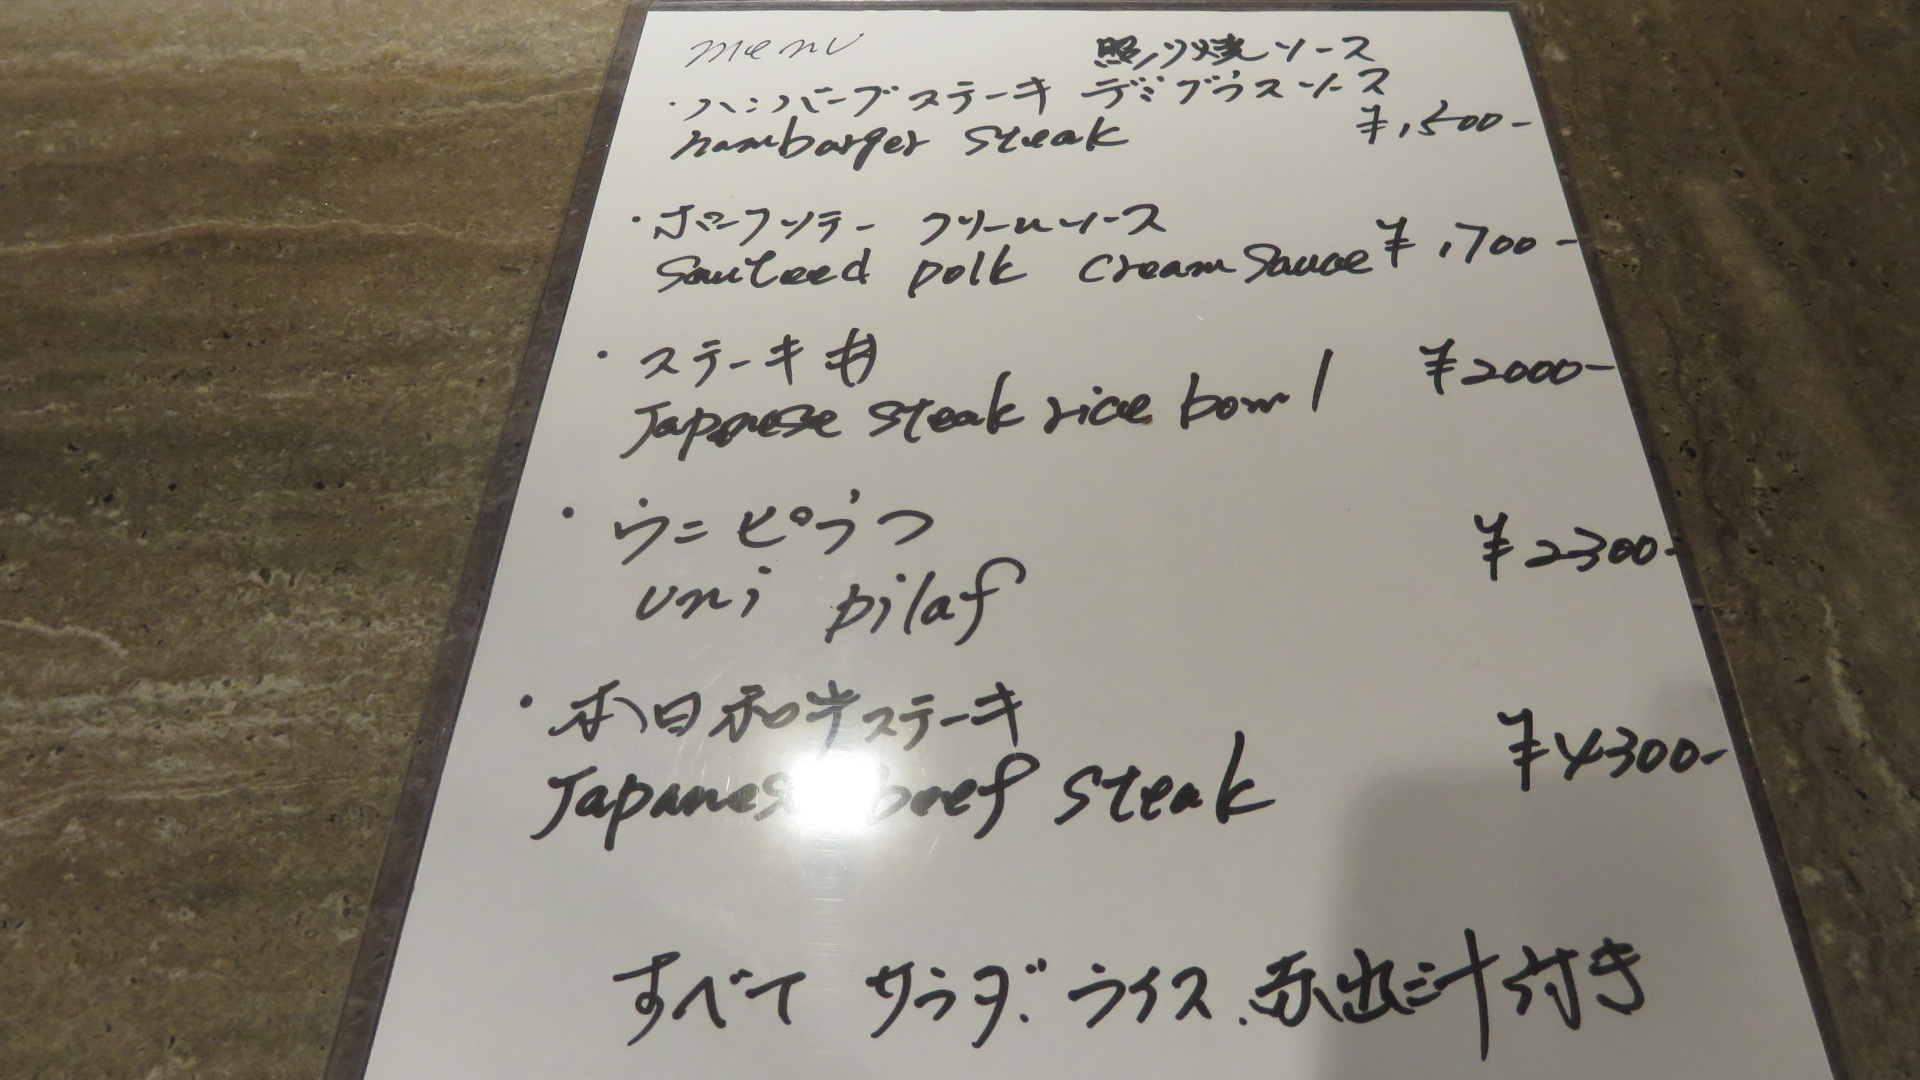 menu
照り焼ソース
・ハンバーグステーキ デミグラスソース
hambarger steak ¥1,500-
・ポークソテー クリームソース
Sauteed polk cream Sauce ¥1,700-
・ステーキ丼 ¥2000-
Japanese steak rice bowl
・ウニピラフ ¥2300-
uni pilaf
・本日和牛ステーキ ¥4300-
Japanese beef steak
すべて サラダ、ライス、赤出汁付き